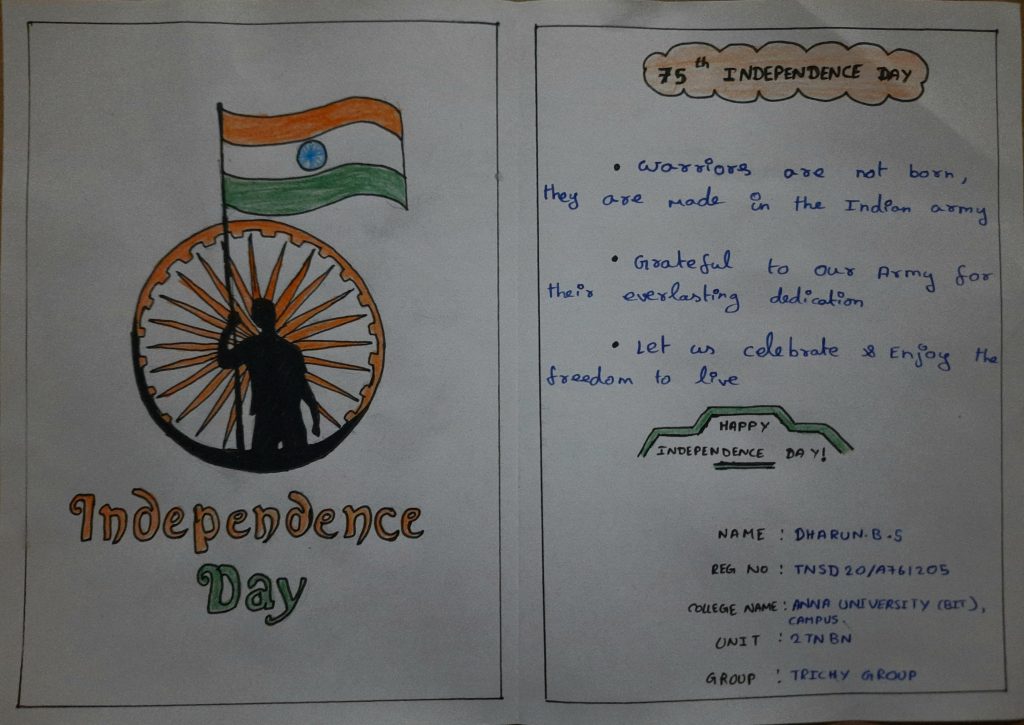 Independence
Day
75th INDEPENDENCE DAY
• Warriors are not born,
they are Made in the Indian army
• Grateful to our Army for
their everlasting dedication
• Let us celebrate & Enjoy the
freedom to live
HAPPY
INDEPENDENCE DAY!
NAME : DHARUN.B.S
REG NO : TNSD20/A761205
COLLEGE NAME : ANNA UNIVERSITY (BIT),
CAMPUS.
UNIT : 2TNBN
GROUP : TRICHY GROUP